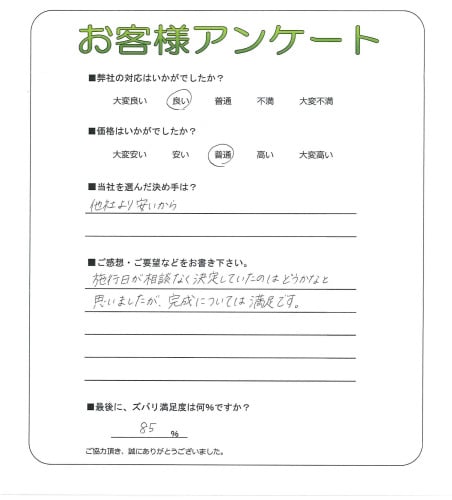 お客様アンケート
■弊社の対応はいかがでしたか？
大変良い 良い 普通 不満 大変不満
■価格はいかがでしたか？
大変安い 安い 普通 高い 大変高い
■当社を選んだ決め手は？
他社より安いから
■ご感想・ご要望などをお書き下さい。
施行日が相談なく決定していたのはどうかなと
思いましたが、完成については満足です。
■最後に、ズバリ満足度は何%ですか？
85 %
ご協力頂き、誠にありがとうございました。